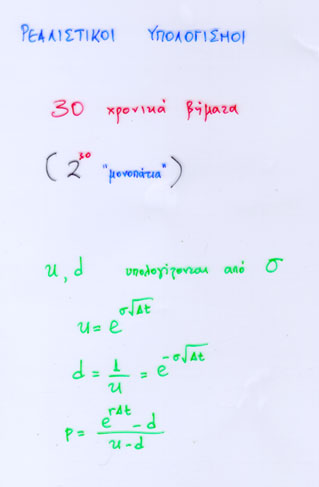 ΡΕΑΛΙΣΤΙΚΟΙ ΥΠΟΛΟΓΙΣΜΟΙ
30 χρονικά βήματα
(2^30 "μονοπάτια")
u, d υπολογίζονται από σ
u = e^{σ√Δt}
d = 1/u = e^{-σ√Δt}
p = (e^{rΔt} - d)/(u - d)